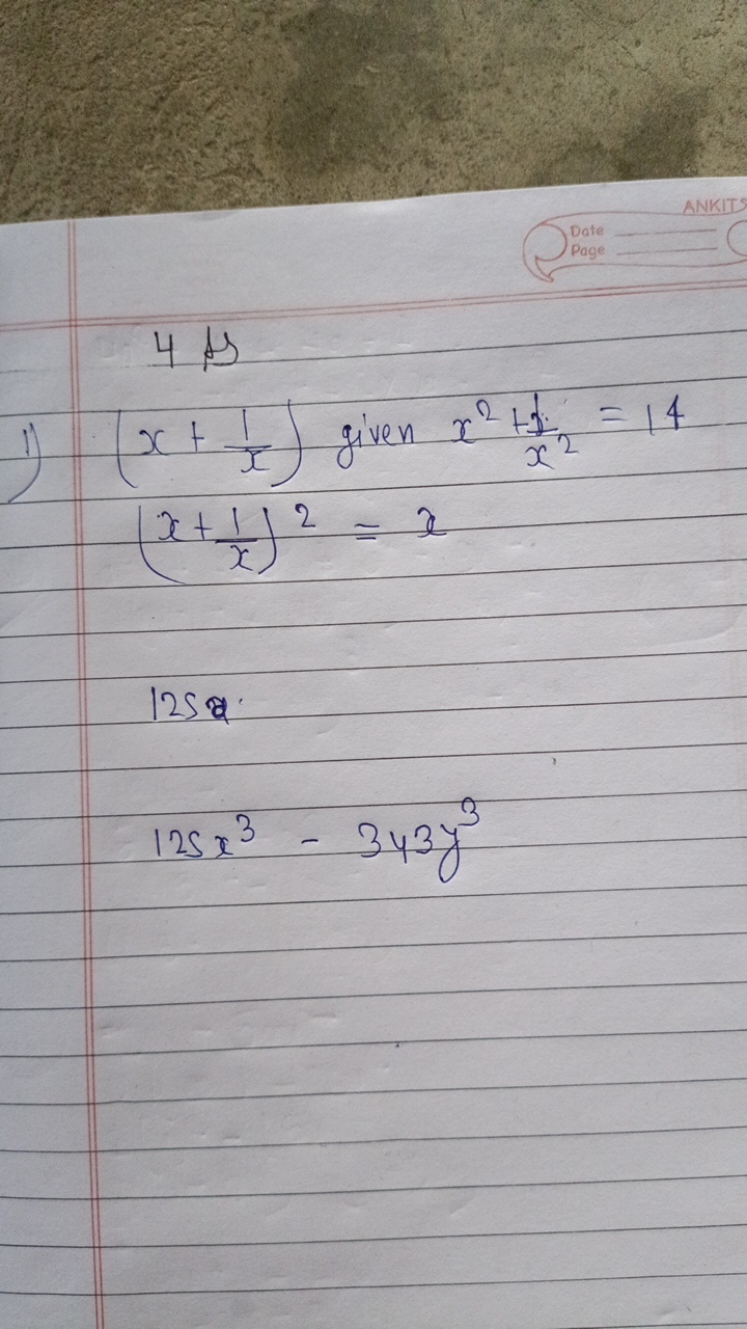 ANKITS
Date
Page
4
1) (x + 1/x) given x² + 1/x² = 14
(x + 1/x)² = x
125
125x³ - 343y³